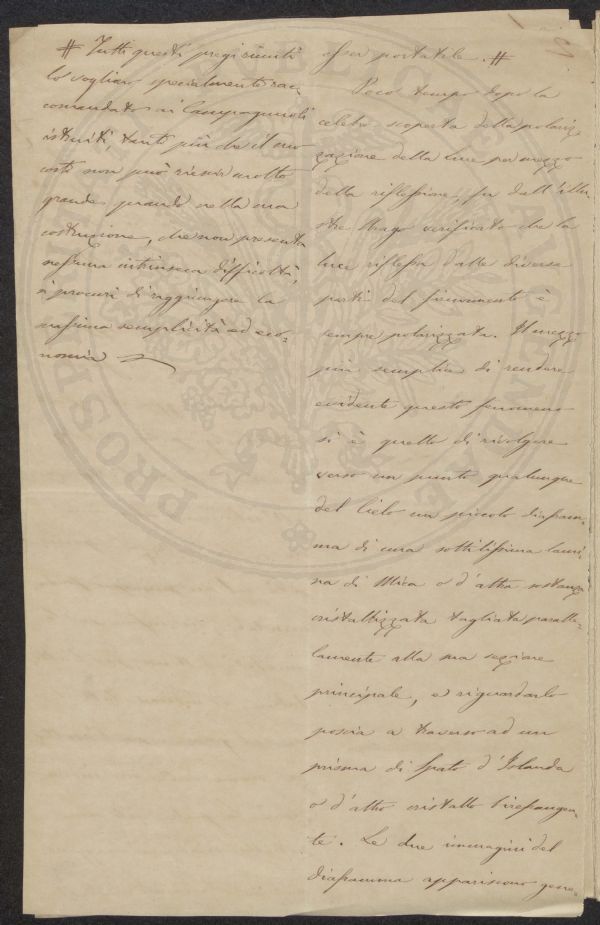 # Tutti questi pregi riuniti
lo vogliono specialmente rac-
comandato ai Campagnuoli
istruiti, tanto più che il suo
costo non può riescir molto
grande quando nella sua
costruzione, che non presenta
nessuna intrinseca difficoltà,
si procuri di raggiungere la
massima semplicità ed eco-
nomia
esser portatile. #
Poco tempo dopo la
celebre scoperta della polariz-
zazione della luce per mezzo
della riflessione, fu dall'illu-
stre Arago verificato che la
luce riflessa dalle diverse
parti del firmamento è
sempre polarizzata. Il mezzo
più semplice di rendere
evidente questo fenomeno
si è quello di rivolgere
verso un punto qualunque
del Cielo un piccolo diafram-
ma di cera sottilissima lami-
na di Mica o d'altra sostanza
cristallizzata tagliata paralle-
lamente alla sua sezione
principale, e riguardarlo
poscia a traverso ad un
prisma di Spato d'Islanda
o d'altro cristallo birefrangen-
te. Le due immagini del
diaframma appariscono gene-
PROSP